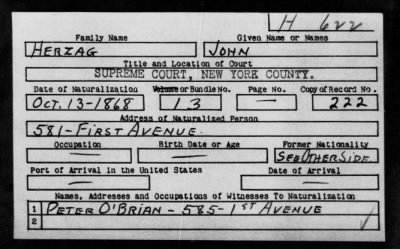 H 622
Family Name Given Name or Names
HERZAG JOHN
Title and Location of Court
SUPREME COURT, NEW YORK COUNTY.
Date of Naturalization Volume or Bundle No. Page No. Copy of Record No.
OCT. 13-1868 13 — 222
Address of Naturalized Person
581-FIRST AVENUE.
Occupation Birth Date or Age Former Nationality
— — SEE OTHER SIDE.
Port of Arrival in the United States Date of Arrival
— —
Names, Addresses and Occupations of Witnesses To Naturalization
1 PETER O'BRIAN - 585-1ST AVENUE
2